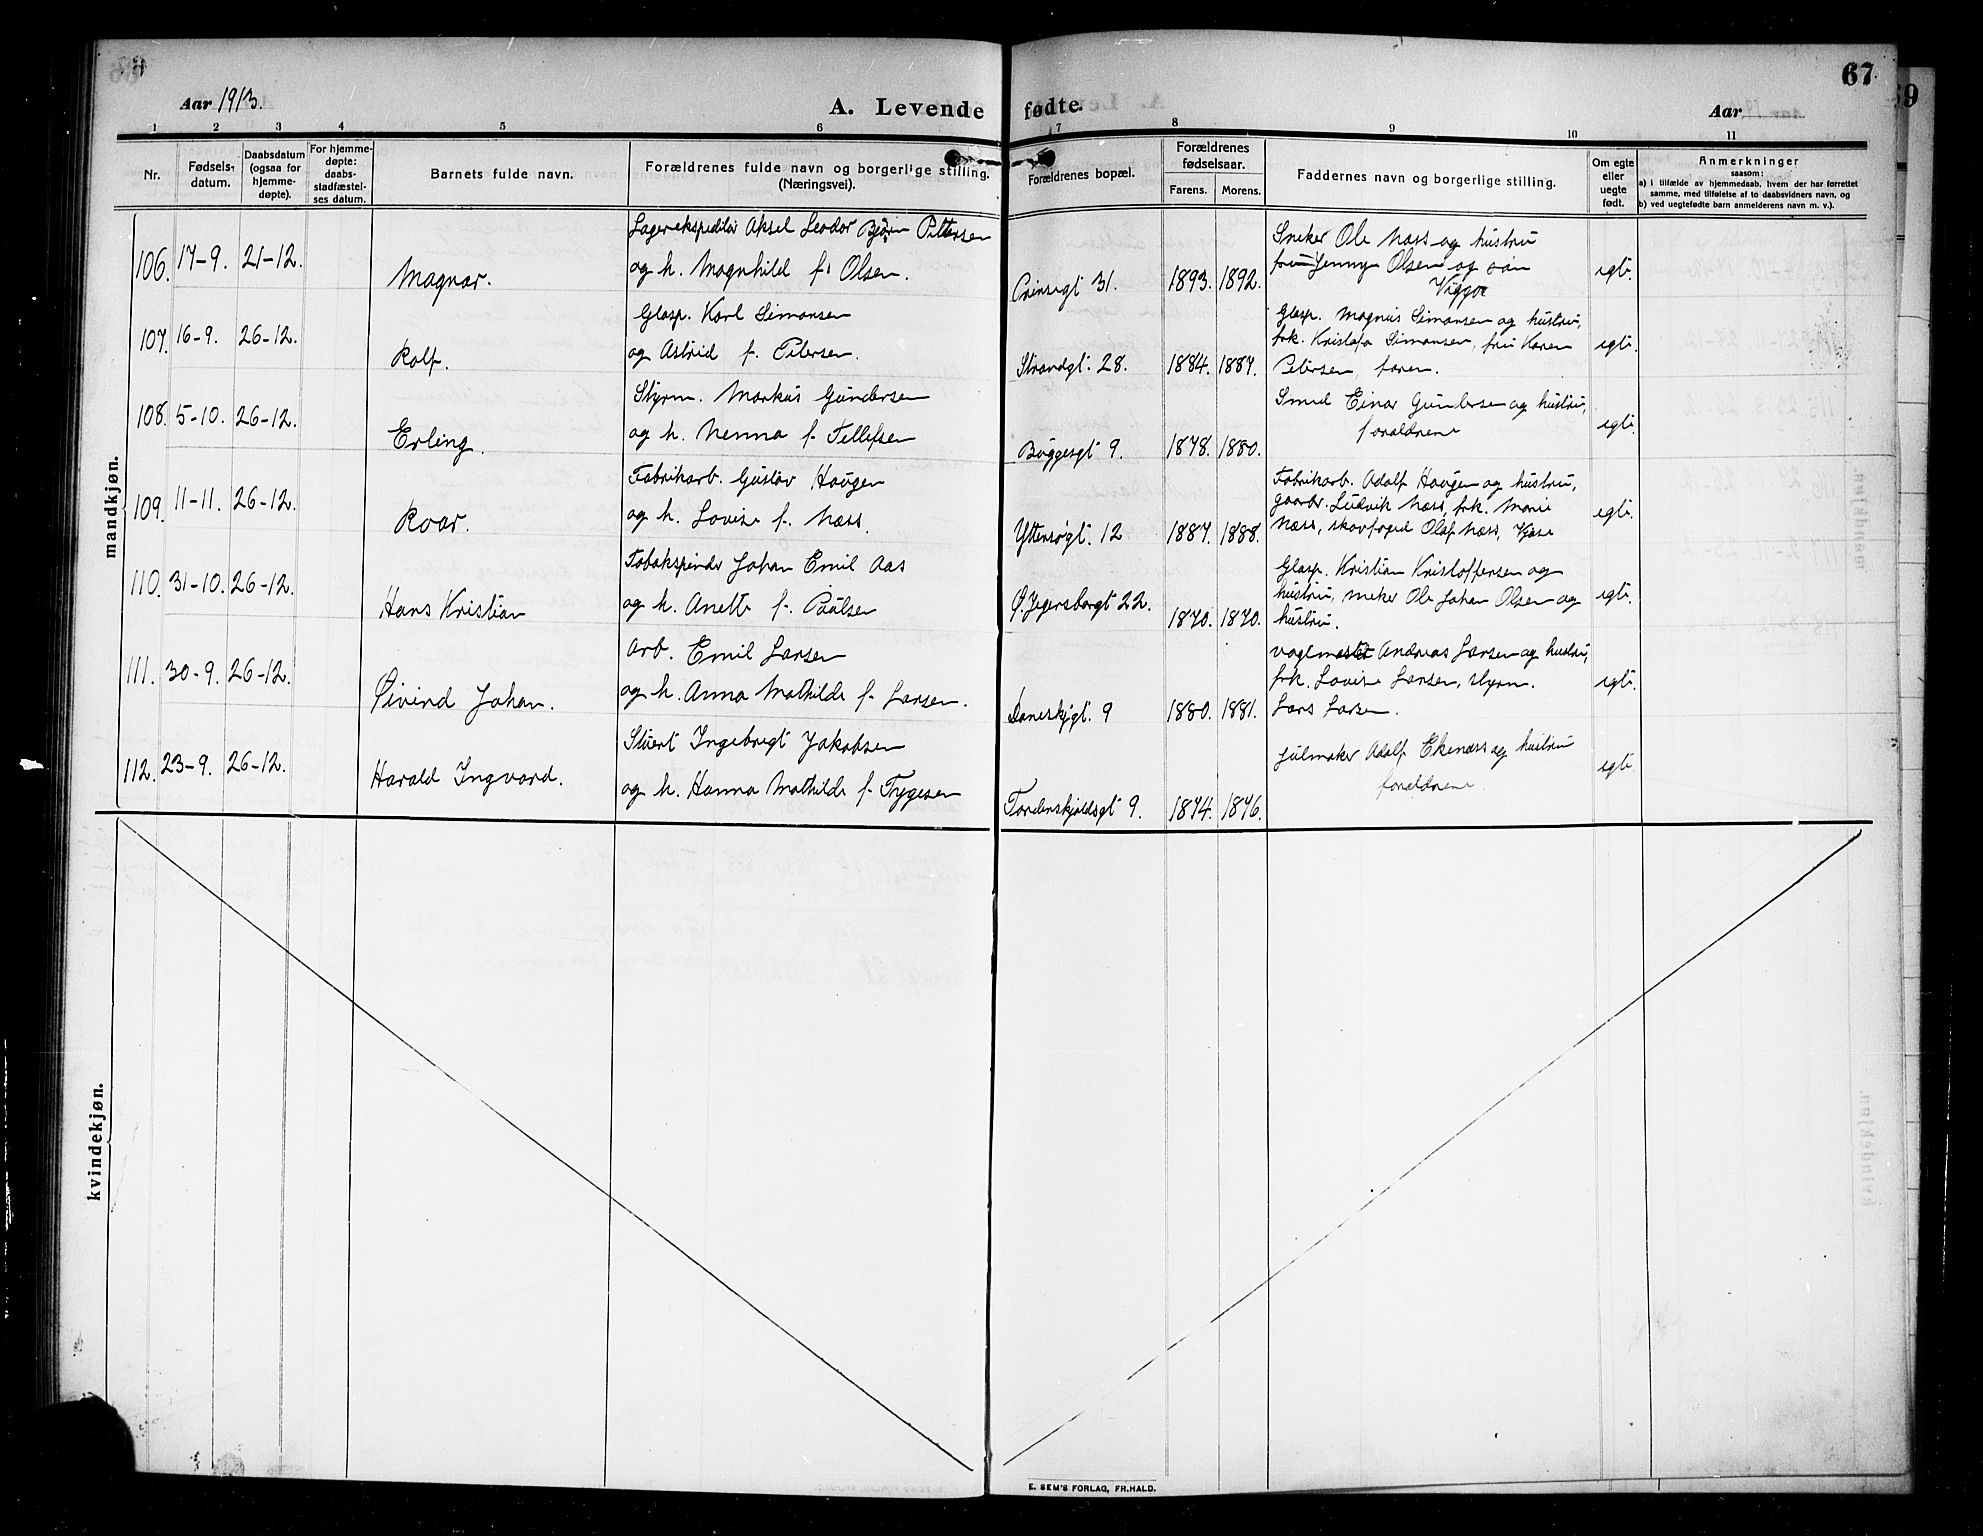 67
Aar 1913.
A. Levende fødte.
Aar
1 2 3 4 5 6 7 8 9 10 11
Nr.
Fødsels-
datum.
Daabsdatum
(ogsaa for
hjemme-
døpte).
For hjemme-
døpte:
daabs-
stadfæstel-
ses datum.
Barnets fulde navn.
Forældrenes fulde navn og borgerlige stilling.
(Næringsvei).
Forældrenes bopæl.
Forældrenes
fødselsaar.
Farens. Morens.
Faddernes navn og borgerlige stilling.
Om egte
eller
uegte
født.
Anmerkninger
saasom:
a) i tilfælde av hjemmedaab, hvem der har forrettet
samme, med tilføielse af to daabsvidners navn, og
b) ved uegtefødte barn anmelderens navn m. v.).
mandkjøn.
106. 17-9. 21-12.
Magnar.
Lagerekspeditør Aksel Leodor Bjørn Pettersen
og h. Magnhild f. Olsen.
Prinsegt 31.
1893. 1892.
Sneker Ole Næss og hustru
fru Jenny Olsen og søn
Viggo
egte.
107. 16-9. 26-12.
Rolf.
Glasp. Karl Simonsen
og Astrid f. Petersen.
Strandgt. 28.
1884. 1887.
Glasp. Magnus Simonsen og hustru,
frk. Kristofa Simonsen, fru Karen
Petersen, faren.
egte.
108. 5-10. 26-12.
Erling.
Styrm. Markus Gundersen
og h. Nenna f. Tellefsen
Buggesgt 9.
1878. 1880.
Smed Einar Gundersen og hustru,
forældrene
egte.
109. 11-11. 26-12.
Roar.
Fabrikarb. Gustav Haugen
og h. Lovise f. Næss.
Yttersøgt. 12
1887. 1888.
Fabrikarb. Adolf Haugen og hustru,
gaardbr. Ludvik Næss, frk. Marie
Næss, skovfoged Olaf Næss, Kjose
egte.
110. 31-10. 26-12.
Hans Kristian
Tobakspinder Johan Emil Aas
og h. Anette f. Paulsen
Ø. Jegersborgt 22.
1870. 1870.
Glasp. Kristian Kristoffersen og
hustru, sneker Ole Johan Olsen og
hustru.
egte.
111. 30-9. 26-12.
Øivind Johan.
Arb. Emil Larsen
og h. Anna Mathilde f. Larsen.
Daneskjgt. 9
1880. 1881.
Andreas Larsen og hustru,
frk. Lovise Larsen, styrm.
Lars Larsen.
egte.
112. 23-9. 26-12.
Harald Ingvard.
Stuert Ingebrigt Jakobsen
og h. Hanna Mathilde f. Trygesen
Tordenskjoldsgt 9.
1874. 1876.
Julmaker Adolf Ekenæss og hustru
forældrene.
egte.
kvindekjøn.
E. SEM'S FORLAG, FR.HALD.